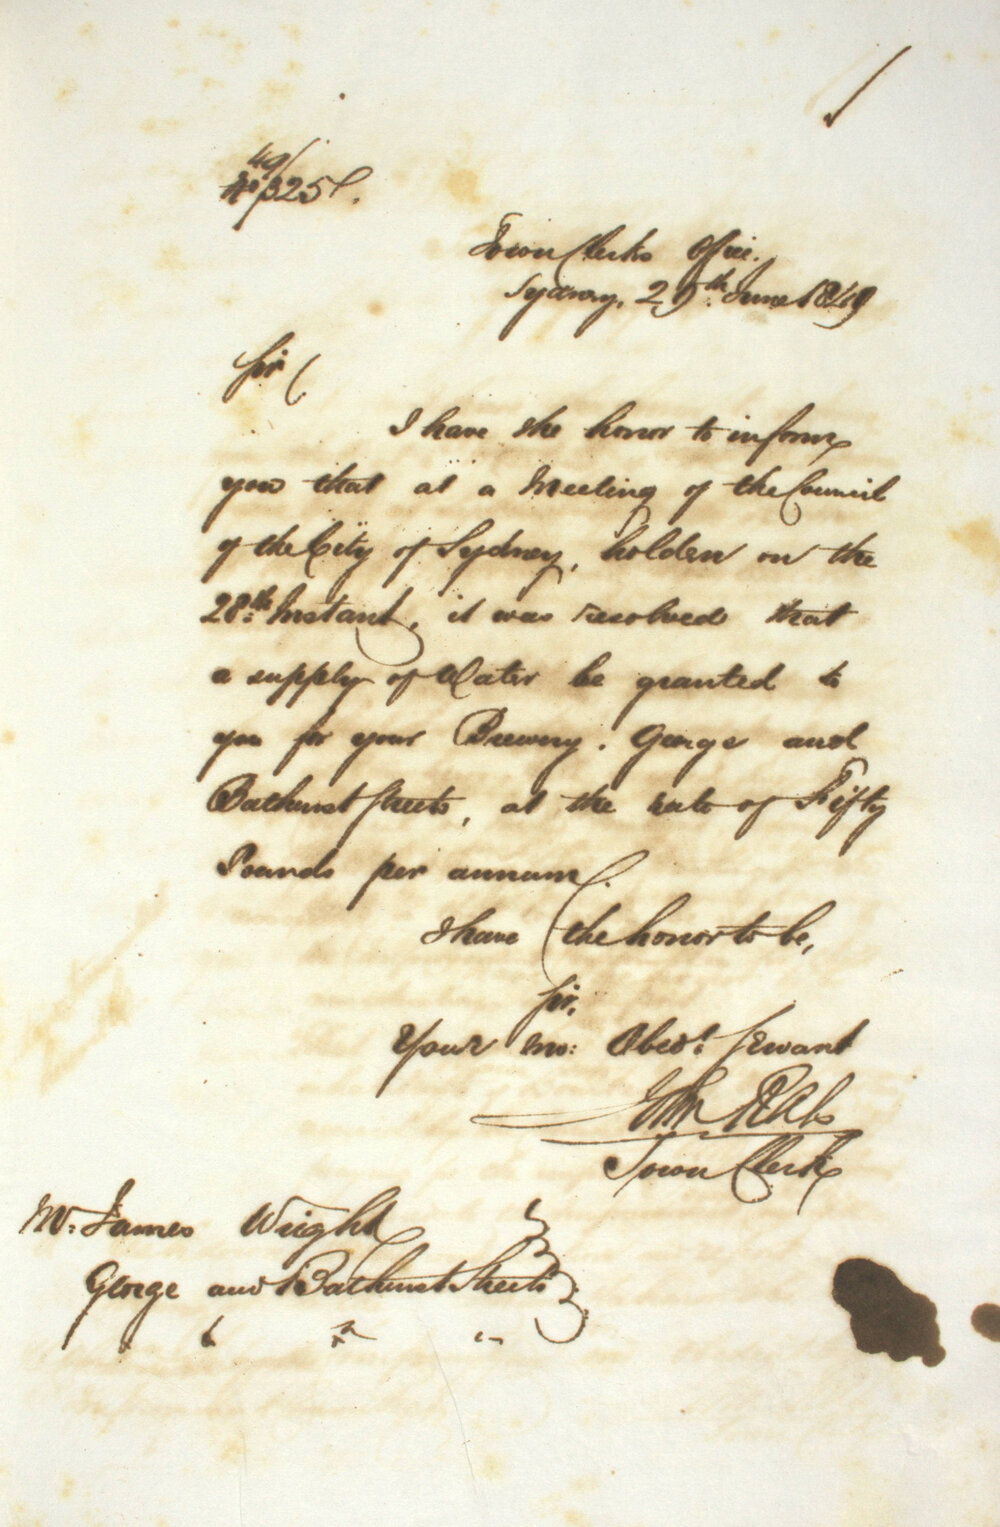 49/
No 325.
Town Clerks Office.
Sydney, 29th June 1849
Sir
I have the honor to inform
you that at a Meeting of the Council
of the City of Sydney, holden on the
28th Instant, it was resolved that
a supply of Water be granted to
you for your Brewery. George and
Bathurst Streets, at the rate of Fifty
Pounds per annum.
I have the honor to be,
Sir,
Your mo: Obedt. Servant
John
Town Clerk
Mr. James Wright
George and Bathurst Streets